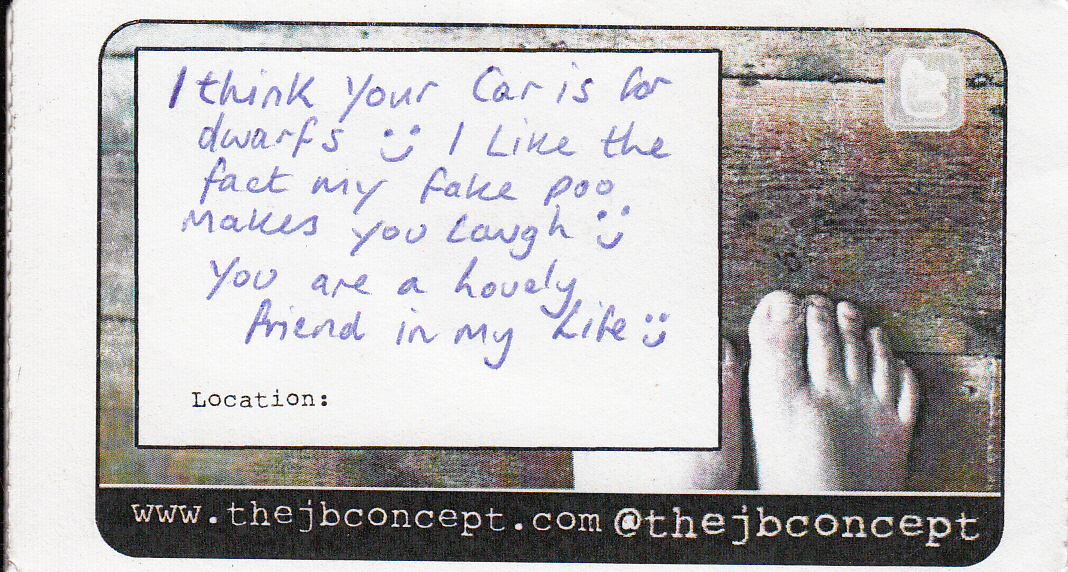 I think Your Car is for
dwarfs :) I Like the
fact my fake poo
Makes you Laugh :)
You are a Lovely
friend in my Life :)
Location:
www.thejbconcept.com @thejbconcept